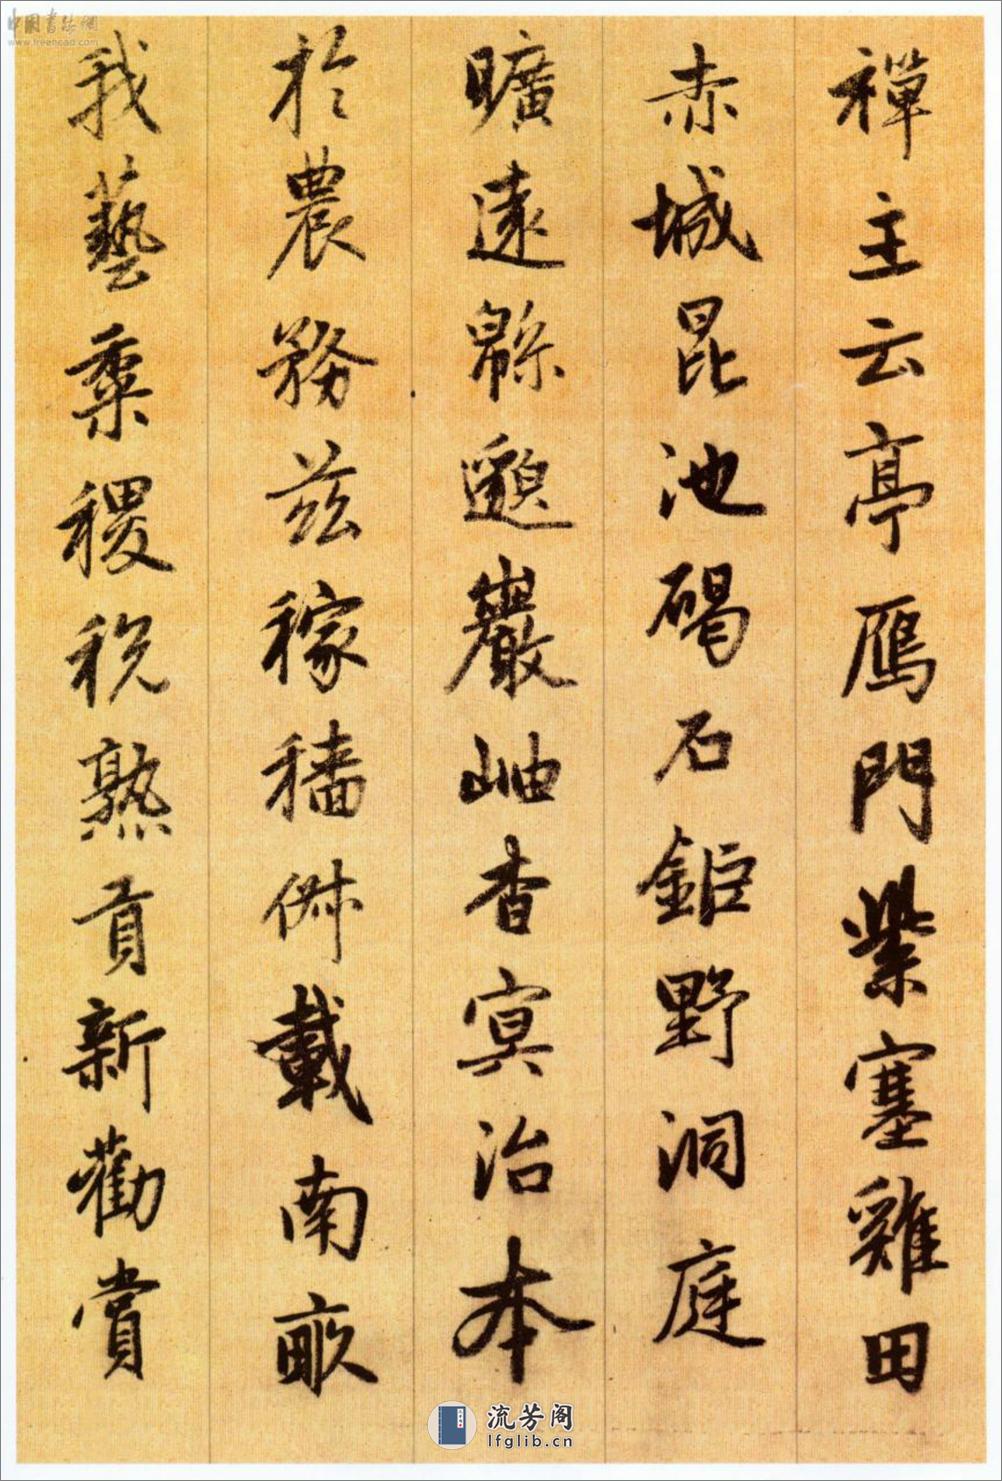 禪主云亭鴈門紫塞雞田
赤城昆池碣石鉅野洞庭
曠遠緜邈巖岫杳冥治本
於農務兹稼穡俶載南畝
我藝黍稷稅熟貢新勸賞
中国书法网
www.freehead.com
流芳阁
lfglib.cn